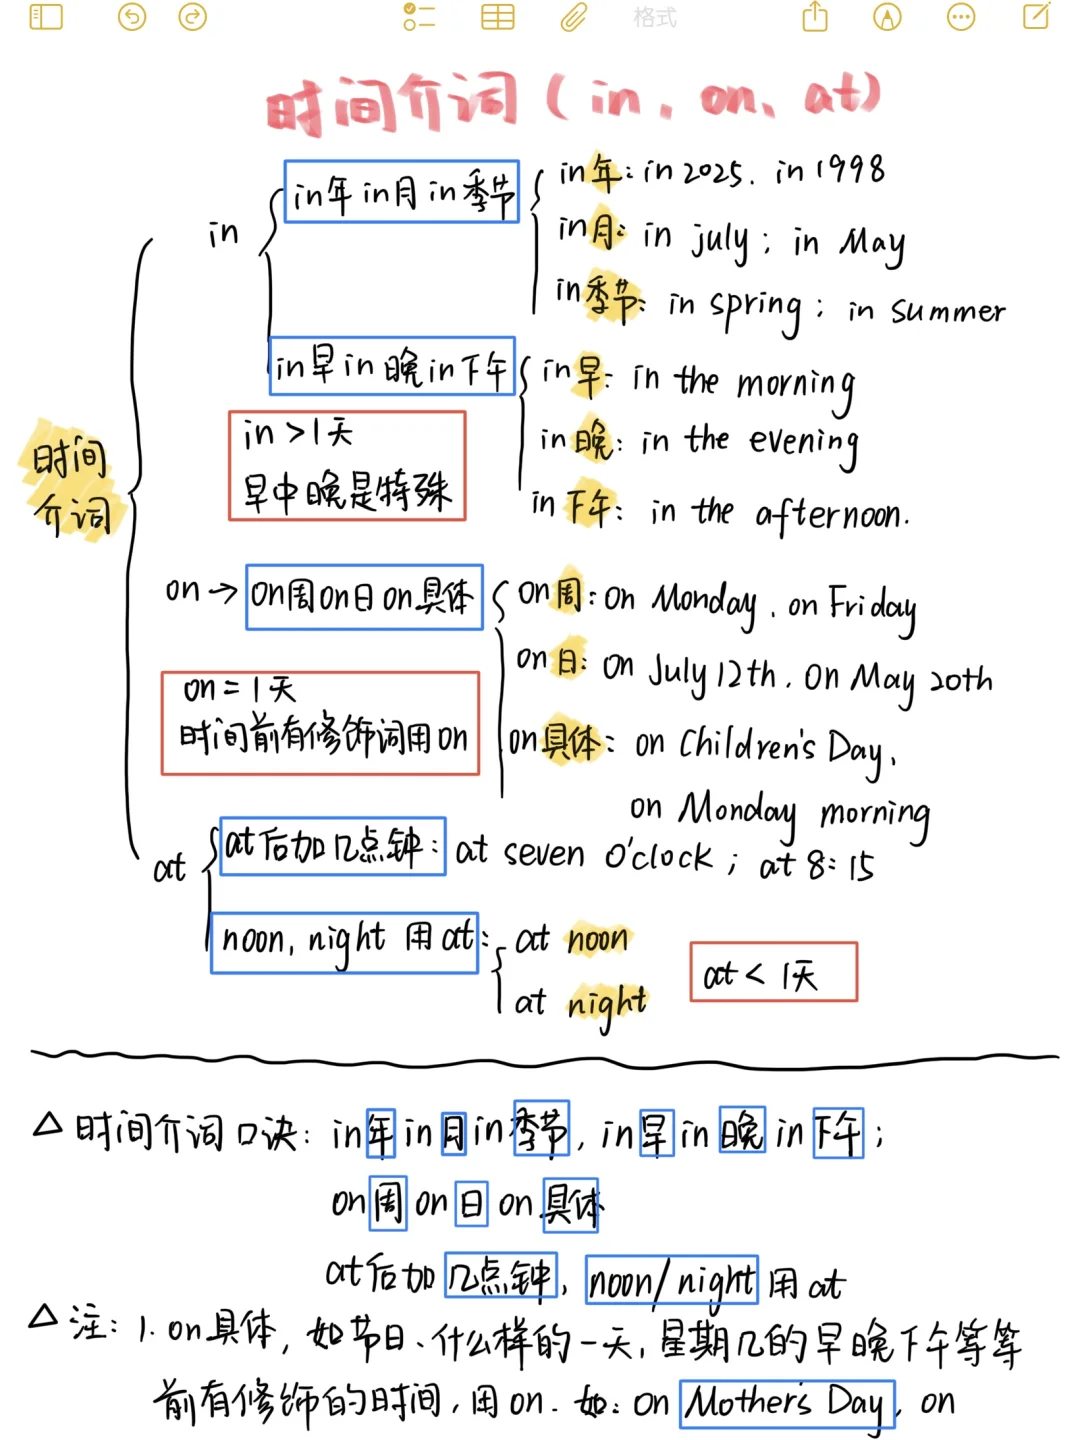 格式
时间介词（in、on、at）
in
in年 in月 in季节
in年：in 2025、in 1998
in月：in july；in May
in季节：in spring；in summer
in早in晚in下午
in早：in the morning
in晚：in the evening
in下午：in the afternoon.
in＞1天
早中晚是特殊
时间
介词
on→on周on日on具体
on周：on Monday、on Friday
on日：on July 12th、on May 20th
on具体：on Children's Day、
on Monday morning
on=1天
时间前有修饰词用on
at
at后加几点钟：at seven o'clock；at 8:15
noon, night 用at：
at noon
at night
at＜1天
△时间介词口诀：in年in月in季节，in早in晚in下午；
on周on日on具体
at后加几点钟，noon/night用at
△注：1. on具体，如节日、什么样的一天，星期几的早晚下午等等
前有修饰的时间，用on. 如：on Mother's Day、on